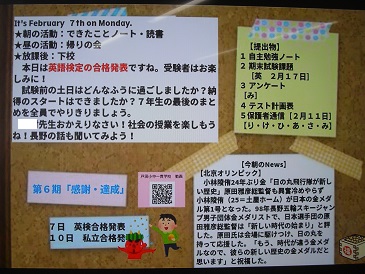 It's February 7th on Monday.
★朝の活動：できたことノート・読書
★昼の活動：帰りの会
★放課後：下校
本日は英語検定の合格発表ですね。受験者はお楽しみに！
試験前の土日はどんなふうに過ごしましたか？納得のスタートはできましたか？７年生の最後のまとめを全員でやりきりましょう。
先生おかえりなさい！社会の授業を楽しもうね！長野の話も聞いてみよう！
【提出物】
1 自主勉強ノート
2 期末試験課題
【英 ２月１７日】
3 アンケート
【み】
4 テスト計画表
5 保護者通信【２月１１日】
【り・け・ひ・あ・さ・み】
第６期「感謝・達成」
７日 英検合格発表
１０日 私立合格発
【今朝のNews】
【北京オリンピック】
小林陵侑24年ぶり金「日の丸飛行隊が新しい歴史」原田雅彦総監督も興奮冷めやらず
小林陵侑（25＝土屋ホーム）が日本の金メダル第1号となった。98年長野五輪スキージャンプ男子団体金メダリストで、日本選手団の原田雅彦総監督は「新しい時代の始まり」と評した。原田氏は会場に駆けつけ、日の丸を持って応援した。「もう、時代が違う金メダルなので、彼らの新しい歴史の金メダルだと思います」と祝福した。